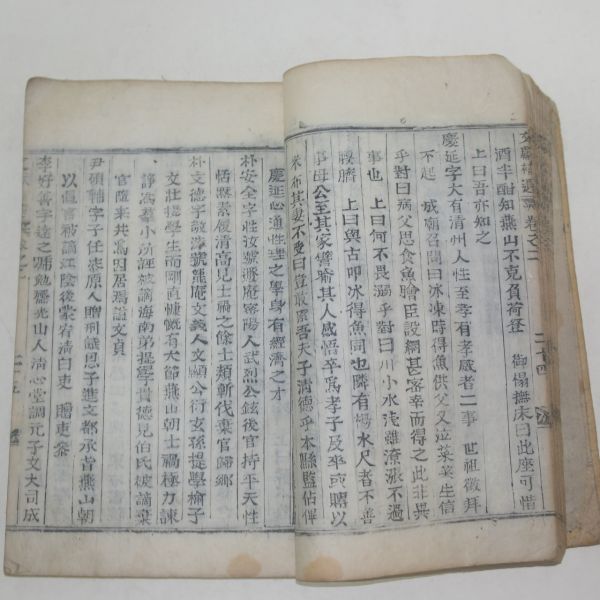 酒半酣知燕山不克負荷登 御榻撫床曰此座可惜
上曰吾亦知之
慶延字大有清州人性至孝有孝感者二事 世祖徵拜
不起 成廟召問曰氷凍時得魚供父又泣菜菜生信
乎對曰病父思食魚膾臣設網甚密幸而得之此非異
事也 上曰何不畏溺乎對曰川小水淺雖潦漲不過
腰臍 上曰與古叩氷得魚同也隣有場水尺者不善
事母公至其家譬喩其人感悟卒爲孝子及卒或賻以
米布其妻不受曰豈敢累吾夫子清德乎本縣監佔俾
慶延心通性理之學身有經濟之才
朴安全字性汝號 庵密陽人武烈公鉉後官持平天性
恬黙素履清高見士禍之餘士類斬伐棄官歸鄉
朴支德字 號 庵文義人文顯公衍玄孫提學楡子
文壯提學生而剛直慷慨有大節燕山朝士禍極力諫
諍爲羣小所誣被謫海南弟提學貴德兄伯氏被謫棄
官隨來共爲因居焉謚文貞
尹碩輔字子任漆原人贈刑議思子進文都承旨燕山朝
以 官被謫江陰後蒙宥清白吏 贈吏叅
李好善字達之 勉 光山人清心堂調元子文大司成